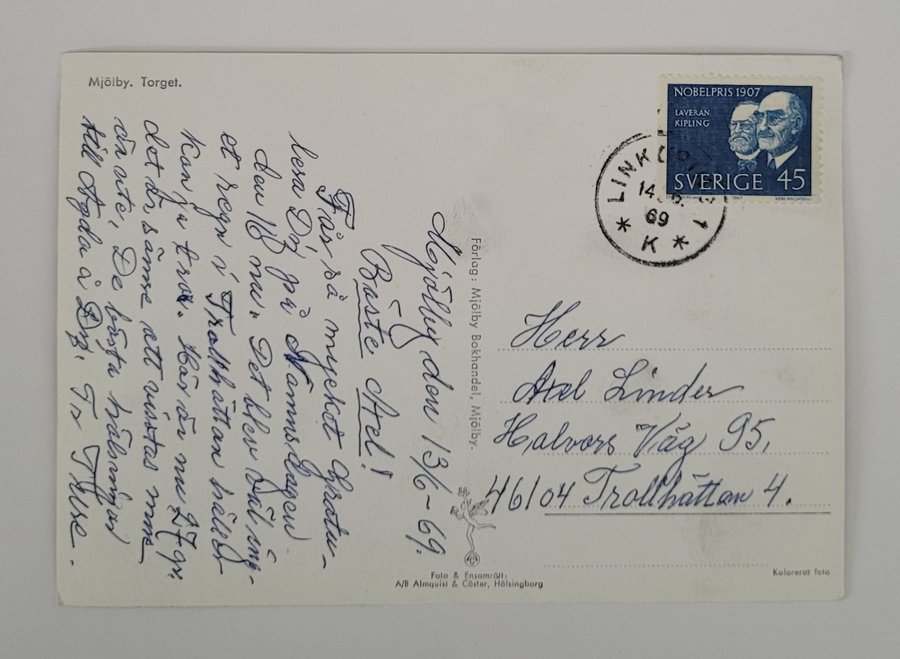 Mjölby. Torget.
NOBELPRIS 1907
LAVERAN
KIPLING
SVERIGE 45
LINK 1
14. 6.
69
* K *
Mjölby den 13/6-69.
Bäste Axel!
Får så mycket gratu-
lera Dig på Namnsdagen
den 16 nu. Det blev väl ing-
et regn i Trollhättan heller
kan ju tro. Här är nu 27 gr.
det är sämre att vistas inne
än ute, De bästa hälsningar
till Agda o Dig. Fr Ture.
Förlag: Mjölby Bokhandel, Mjölby.
Herr
Axel Linder
Halvors Väg 95,
46104 Trollhättan 4.
Foto & Ensamrätt:
A/B Almquist & Cöster, Hälsingborg
Kolorerat foto